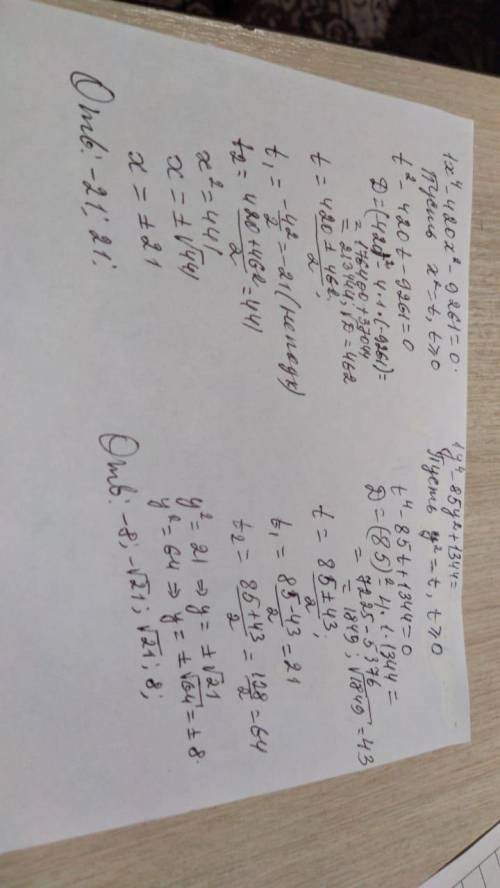 1x⁴-420x²-9261=0.
Пусть x²=t, t≥0
t²-420t-9261=0
D=(420)²-4·1·(-9261)=
=176400+37044
=213444; √D=462
t=(420±462)/2;
t₁=-42/2=-21(не подх)
t₂=(420+462)/2=441
x²=441
x=±√441
x=±21
Отв: -21; 21.
1y⁴-85y²+1344=
Пусть y²=t, t≥0
t⁴-85t+1344=0
D=(85)²-4·1·1344=
=7225-5376
=1849; √1849=43
t=(85±43)/2;
t₁=(85-43)/2=21
t₂=(85+43)/2=128/2=64
y²=21⇒y=±√21
y²=64⇒y=±√64=±8.
Отв: -8; -√21; √21; 8;